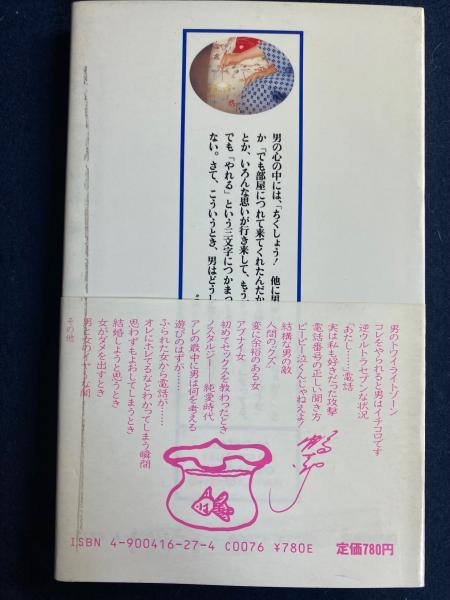 男の心の中には、「ちくしょう！ 他に男
か「でも部屋につれて来てくれたんだか
とか、いろんな思いが行き来して、もう
でも「やれる」という三文字につかまっ
ない。さて、こういうとき、男はどうし
男のトワイライトゾーン
コレをやられると男はイチコロです
逆ウルトラセブンな状況
「あたし……」電話
実は私も好きだった攻撃
電話番号の正しい聞き方
ピーピー泣くんじゃねえよ！
結構な男の敵
人間のクズ
変に余裕のある女
アブナイ女
初めてセックスを教わったとき
ノスタルジー 純愛時代
アレの最中に男は何を考える
遊びのはずが……
ふられた女から電話が……
オレにホレてるなとわかってしまう瞬間
思わずもよおしてしまうとき
結婚しようと思うとき
女がダメを出すとき
男と女のイヤ～な間
その他
ISBN 4-900416-27-4 C0076 ¥780E 定価780円